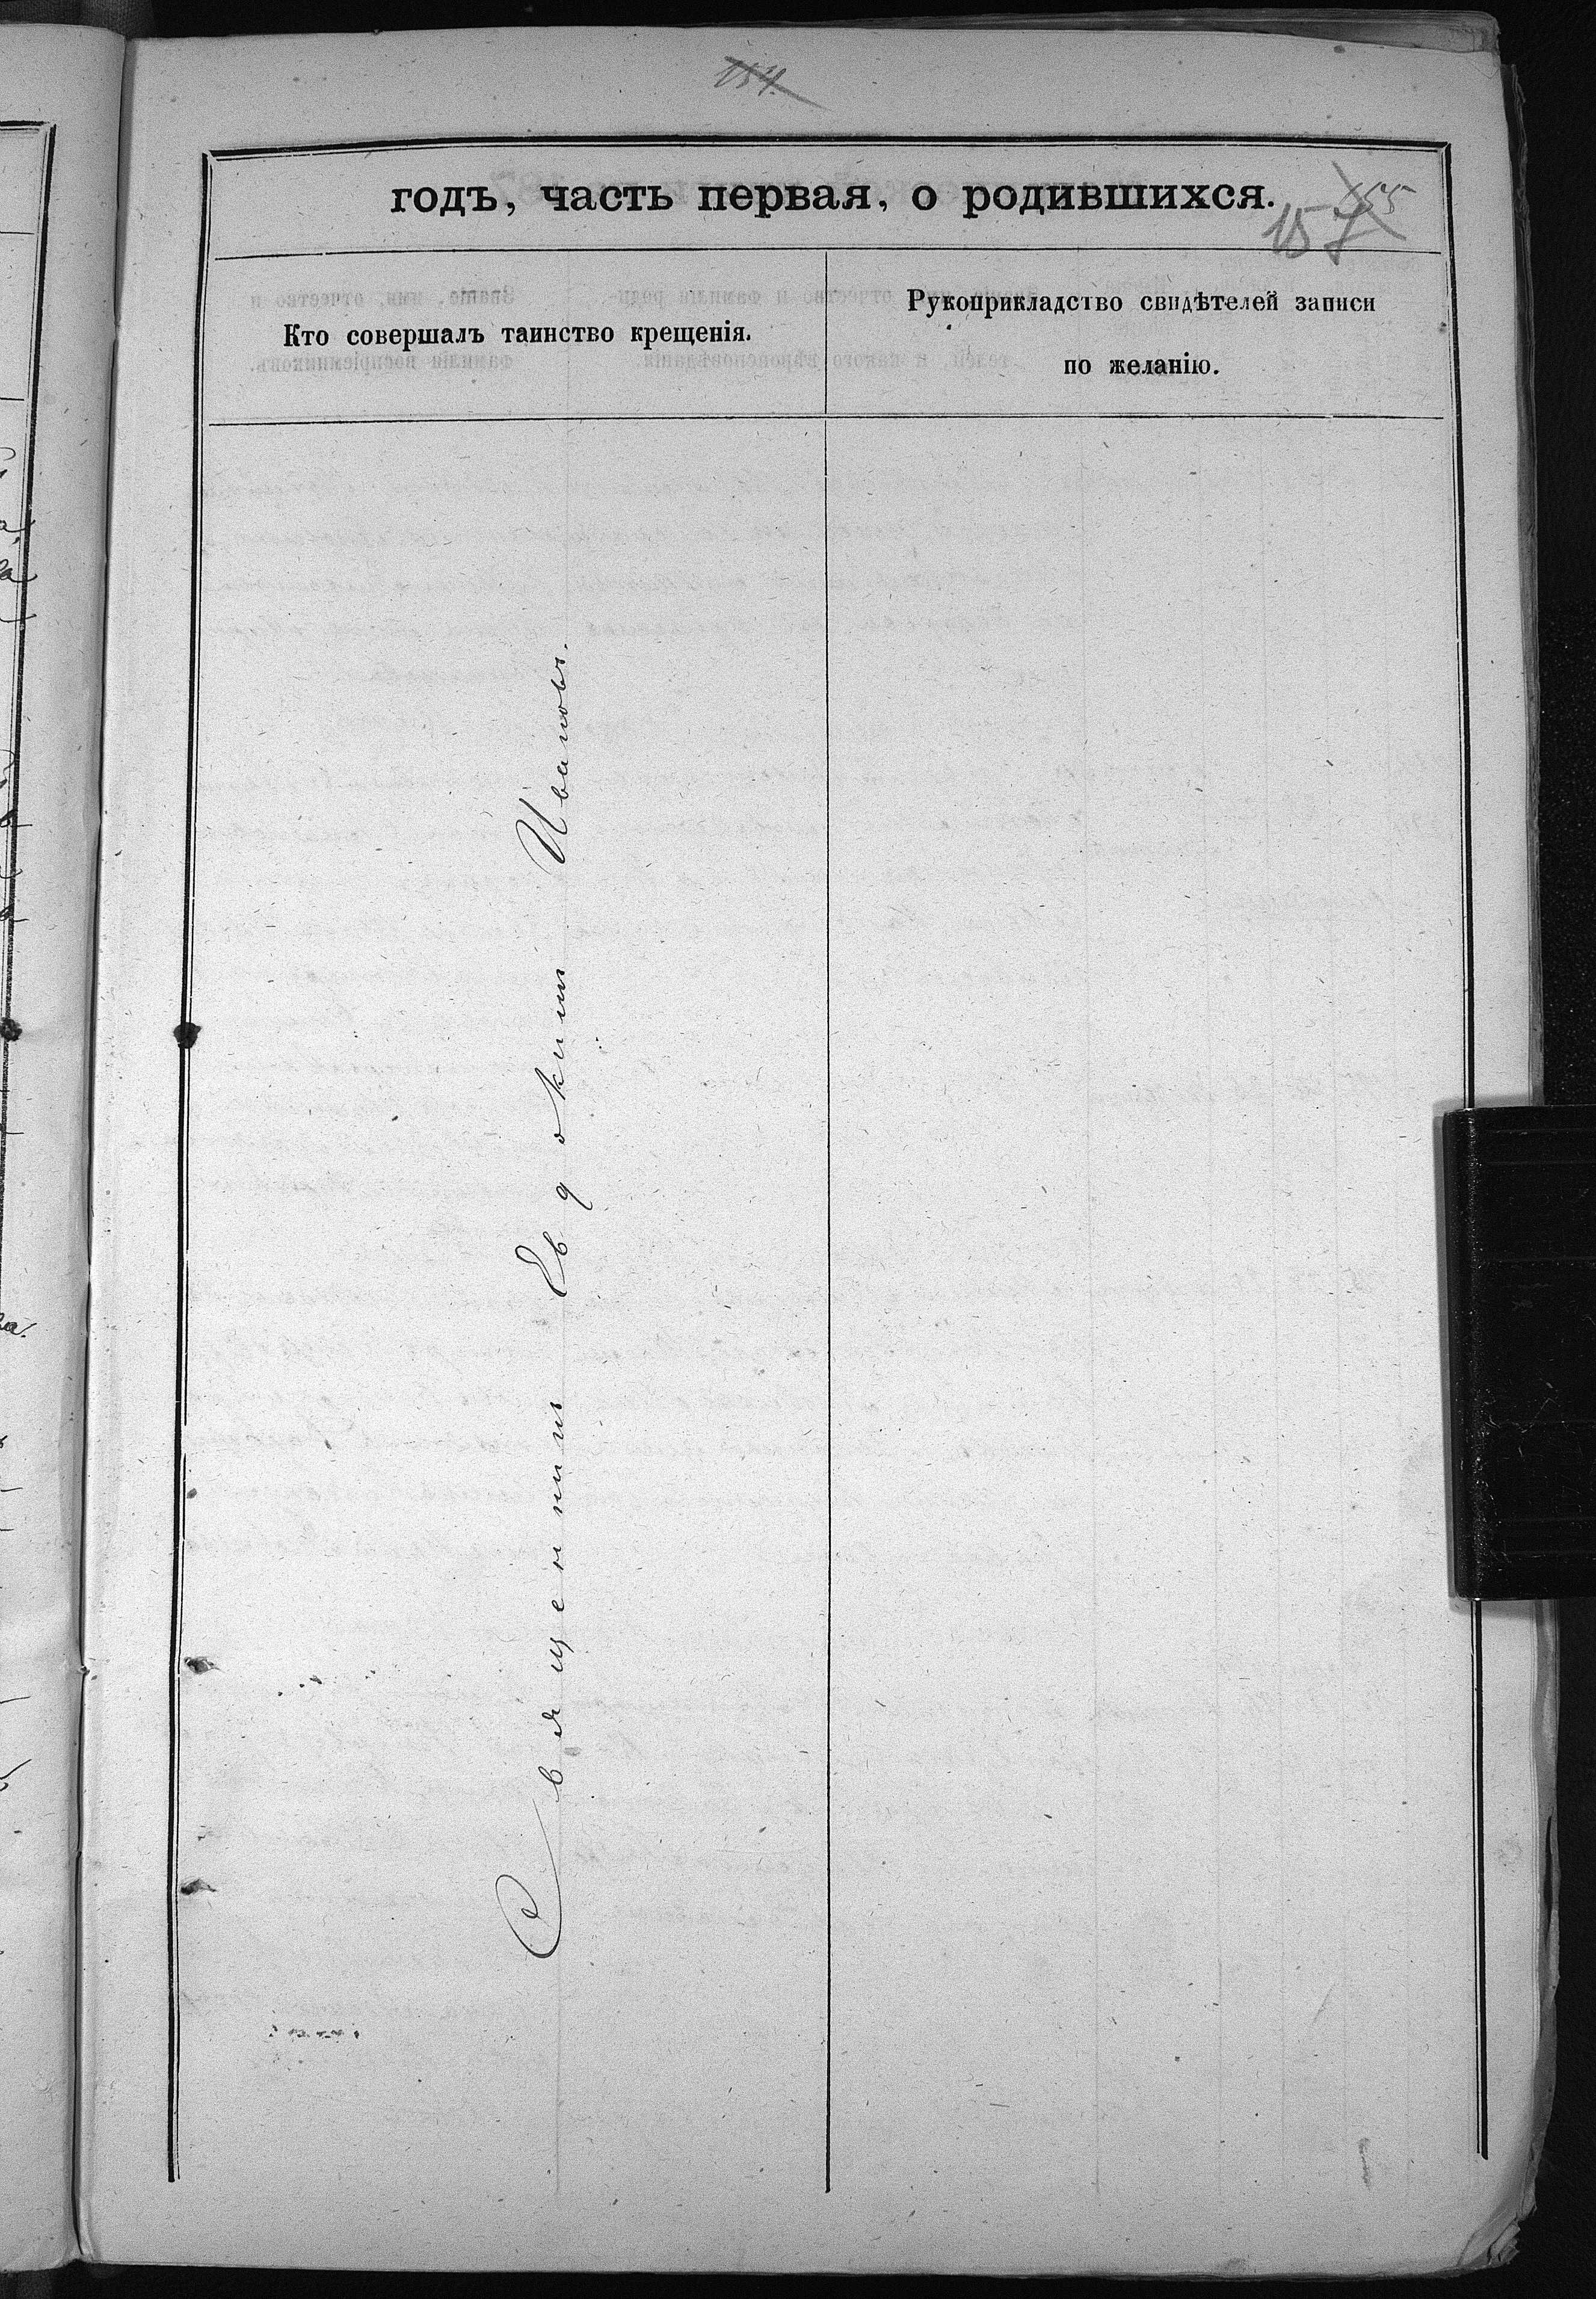 154.
годъ, часть первая, о родившихся.
155
157
Кто совершалъ таинство крещенія.
Рукоприкладство свидѣтелей записи
по желанію.
Священникъ Евдокимъ Ивановъ.